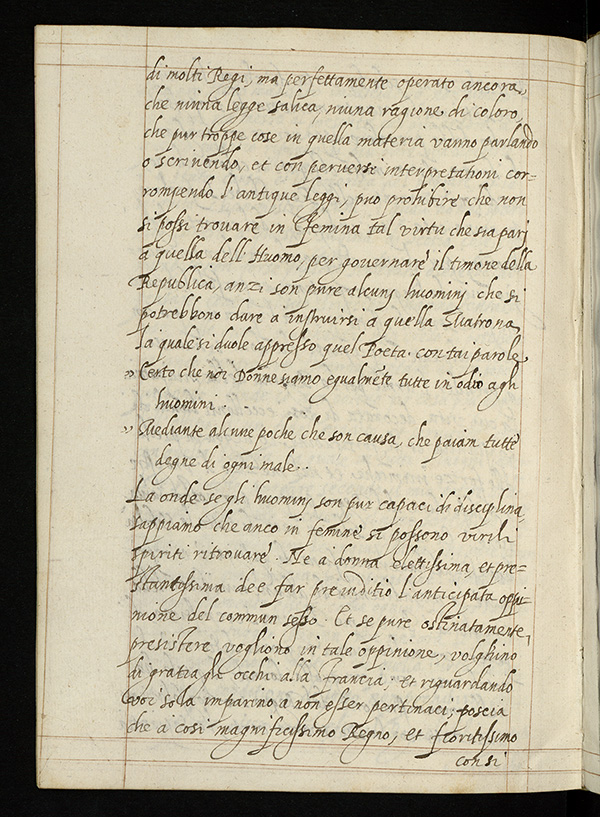 di molti Regi, ma perfettamente operato ancora,
che niuna legge salica, niuna ragione di coloro,
che pur troppe cose in quella materia vanno parlando
o scrivendo, et con perversi interpretationi cor=
rompendo l'antique leggi, puo prohibire che non
si possi trovare in femina tal virtu che sia pari
a quella dell' Huomo, per governare il timone della
Republica, anzi son pure alcunj huominj che si
potrebbono dare a instruirsi a quella Matrona,
la quale si duole appresso quel Poeta con tai parole
» Certo che noi Donne siamo egualmẽte tutte in odio agli
huomini
» Mediante alcune poche che son causa, che paiam tutte
degne di ogni male..
La onde se gli huominj son pur capaci di disciplina,
sappiamo che anco in femine si possono virili
spiriti ritrovare. Ne a donna elettissima, et pre=
stantissima dee far preiuditio l'anticipata oppi=
nione del commun sesso. Et se pure ostinatamente,
presistere vogliono in tale oppinione, volghino
di gratia gli occhi alla Francia, et riguardando
voi sola imparino a non esser pertinaci; poscia
che a così magnificissimo Regno, et fioritissimo
con si